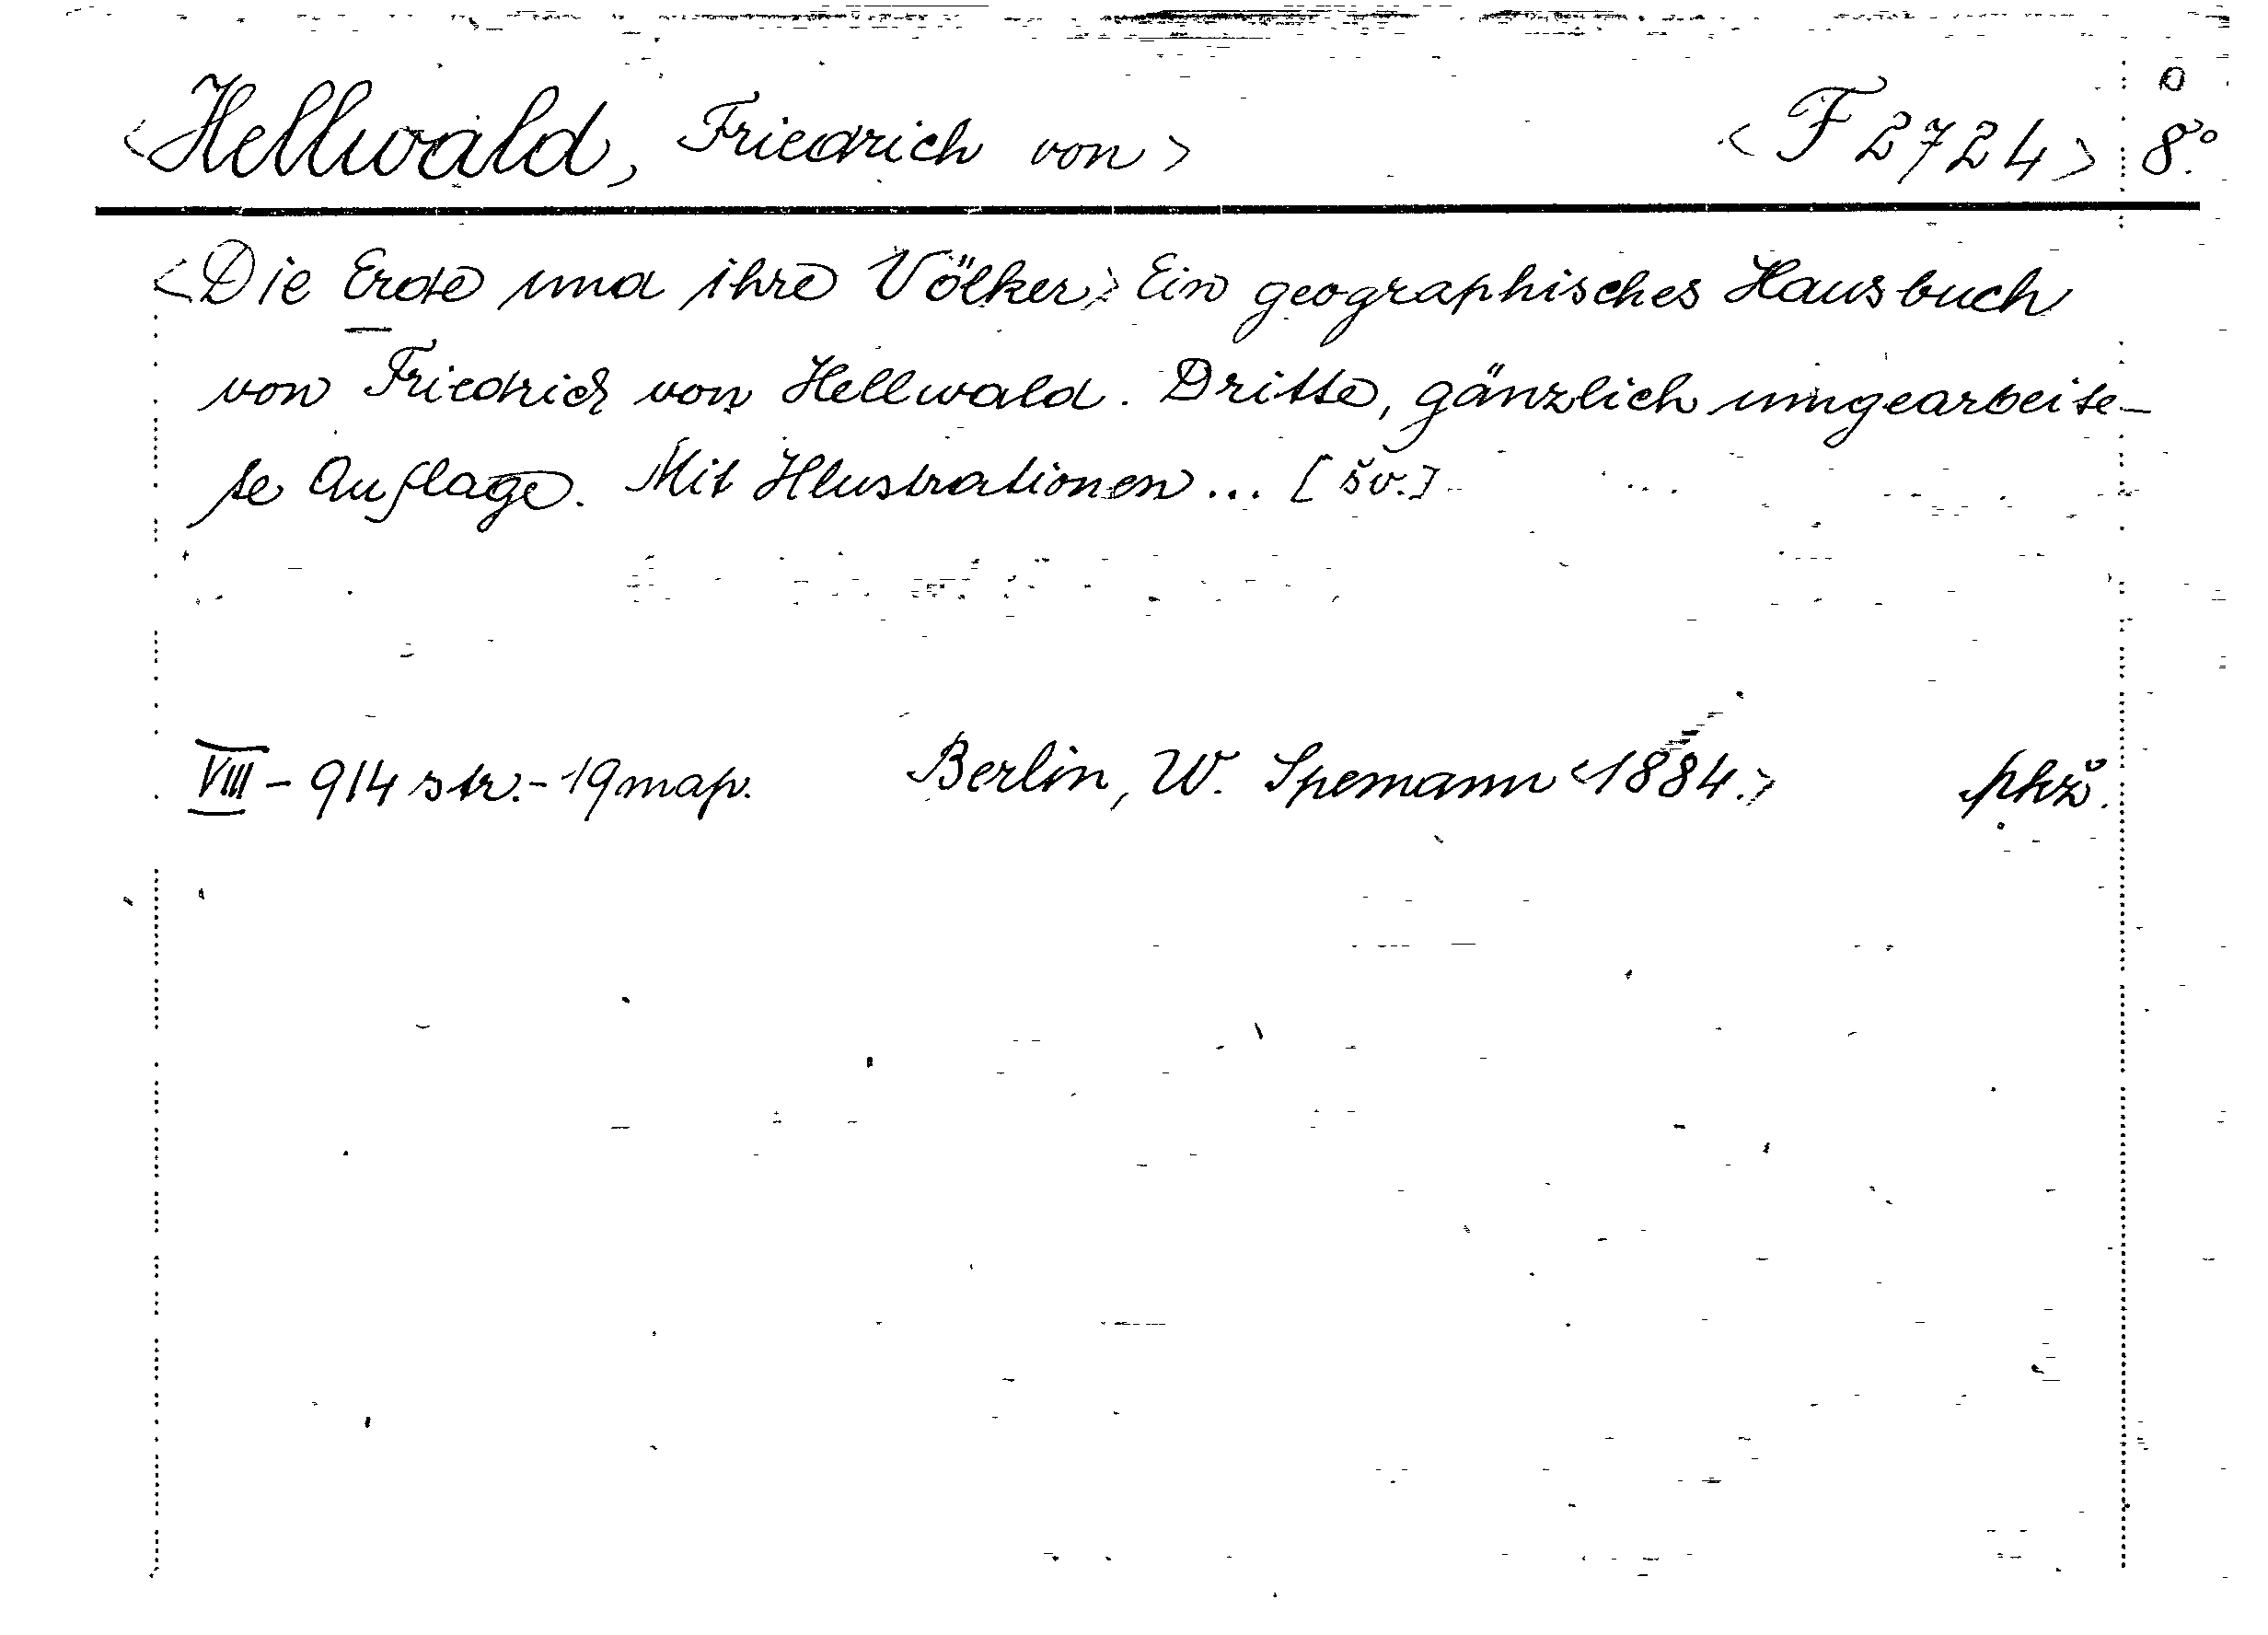 <Hellwald, Friedrich von> <F 2724> 8°.
<Die Erde und ihre Völker> Ein geographisches Hausbuch
von Friedrich von Hellwald. Dritte, gänzlich umgearbeite-
te Auflage. Mit Illustrationen... [šv.]
VIII - 914 str. - 19 map. Berlin, W. Spemann <1884.> pkž.